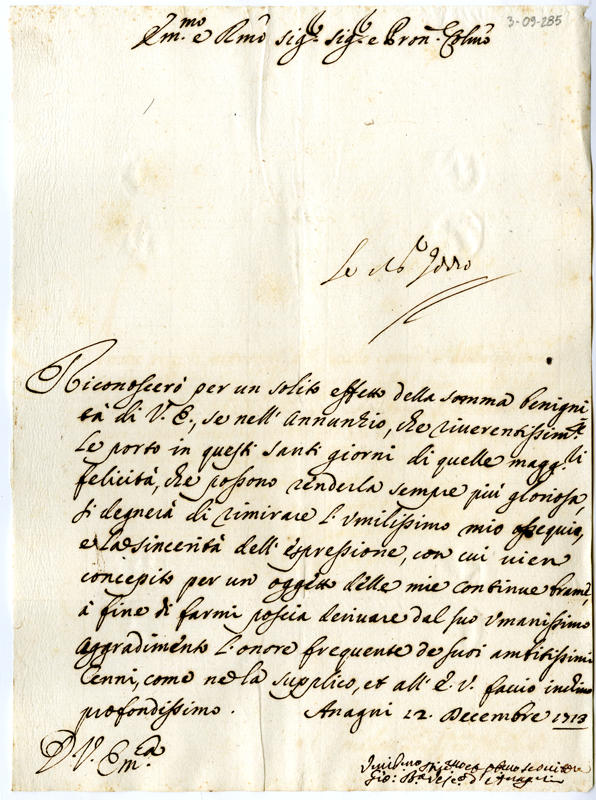 3-09-285
Em.mo e Rmo sig.r sig.r e Pron. Colmo
Riconoscerò per un solito effetto della somma benigni
tà di V. E., se nell' Annunzio, che riverentissim.te
Le porto in questi santi giorni di quelle magg.ri
felicità, che possono renderla sempre più gloriosa,
si degnerà di rimirare l' umilissimo mio ossequio,
e la sincerità dell' espressione, con cui vien
concepito per un oggetto delle mie continue brame,
à fine di farmi poscia derivare dal suo umanissimo
aggradimento l' onore frequente de suoi ambitissimi
Cenni, come ne la supplico, et all' E. V. faccio inchino
profondissimo. Anagni 12. Decembre 1713
D. V. Em.za
Gio: Ba. Vesc.o d' Anagni